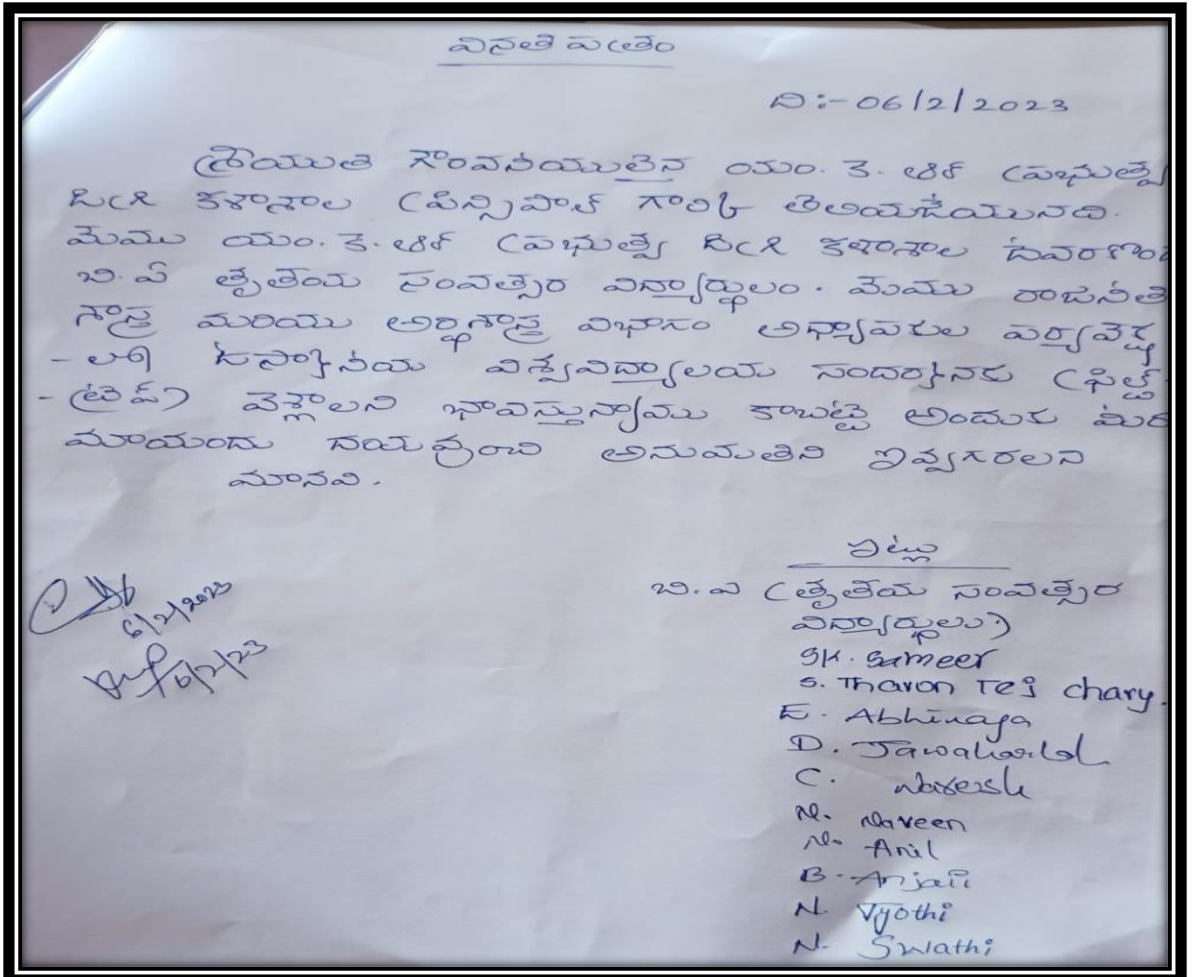 వినతి పత్రం
ది:-06/2/2023
శ్రీయుత గౌరవనీయులైన యం. కె. ఆర్ ప్రభుత్వ
డిగ్రీ కళాశాల ప్రిన్సిపాల్ గారికి తెలియజేయునది.
మేము యం. కె. ఆర్ ప్రభుత్వ డిగ్రీ కళాశాల దేవరకొండ
బి. ఏ తృతీయ సంవత్సర విద్యార్థులం. మేము రాజనీతి
శాస్త్ర మరియు అర్థశాస్త్ర విభాగం అధ్యాపకుల పర్యవేక్ష
- ణలో ఉస్మానియ విశ్వవిద్యాలయ సందర్శనకు (ఫీల్డ్
- ట్రిప్) వెళ్లాలని భావిస్తున్నాము కాబట్టి అందుకు మీరు
మాయందు దయవుంచి అనుమతిని ఇవ్వగరలని
మానవి.
ఇట్లు
బి. ఎ (తృతీయ సంవత్సర
విద్యార్థులు)
SK. Sameer
S. Tharon Tej chary.
E. Abhinaya
D. Jawaharlal
C. Naresh
N. Naveen
N. Anil
B. Anjali
N. Jyothi
N. Swathi
6/2/2023
6/2/23